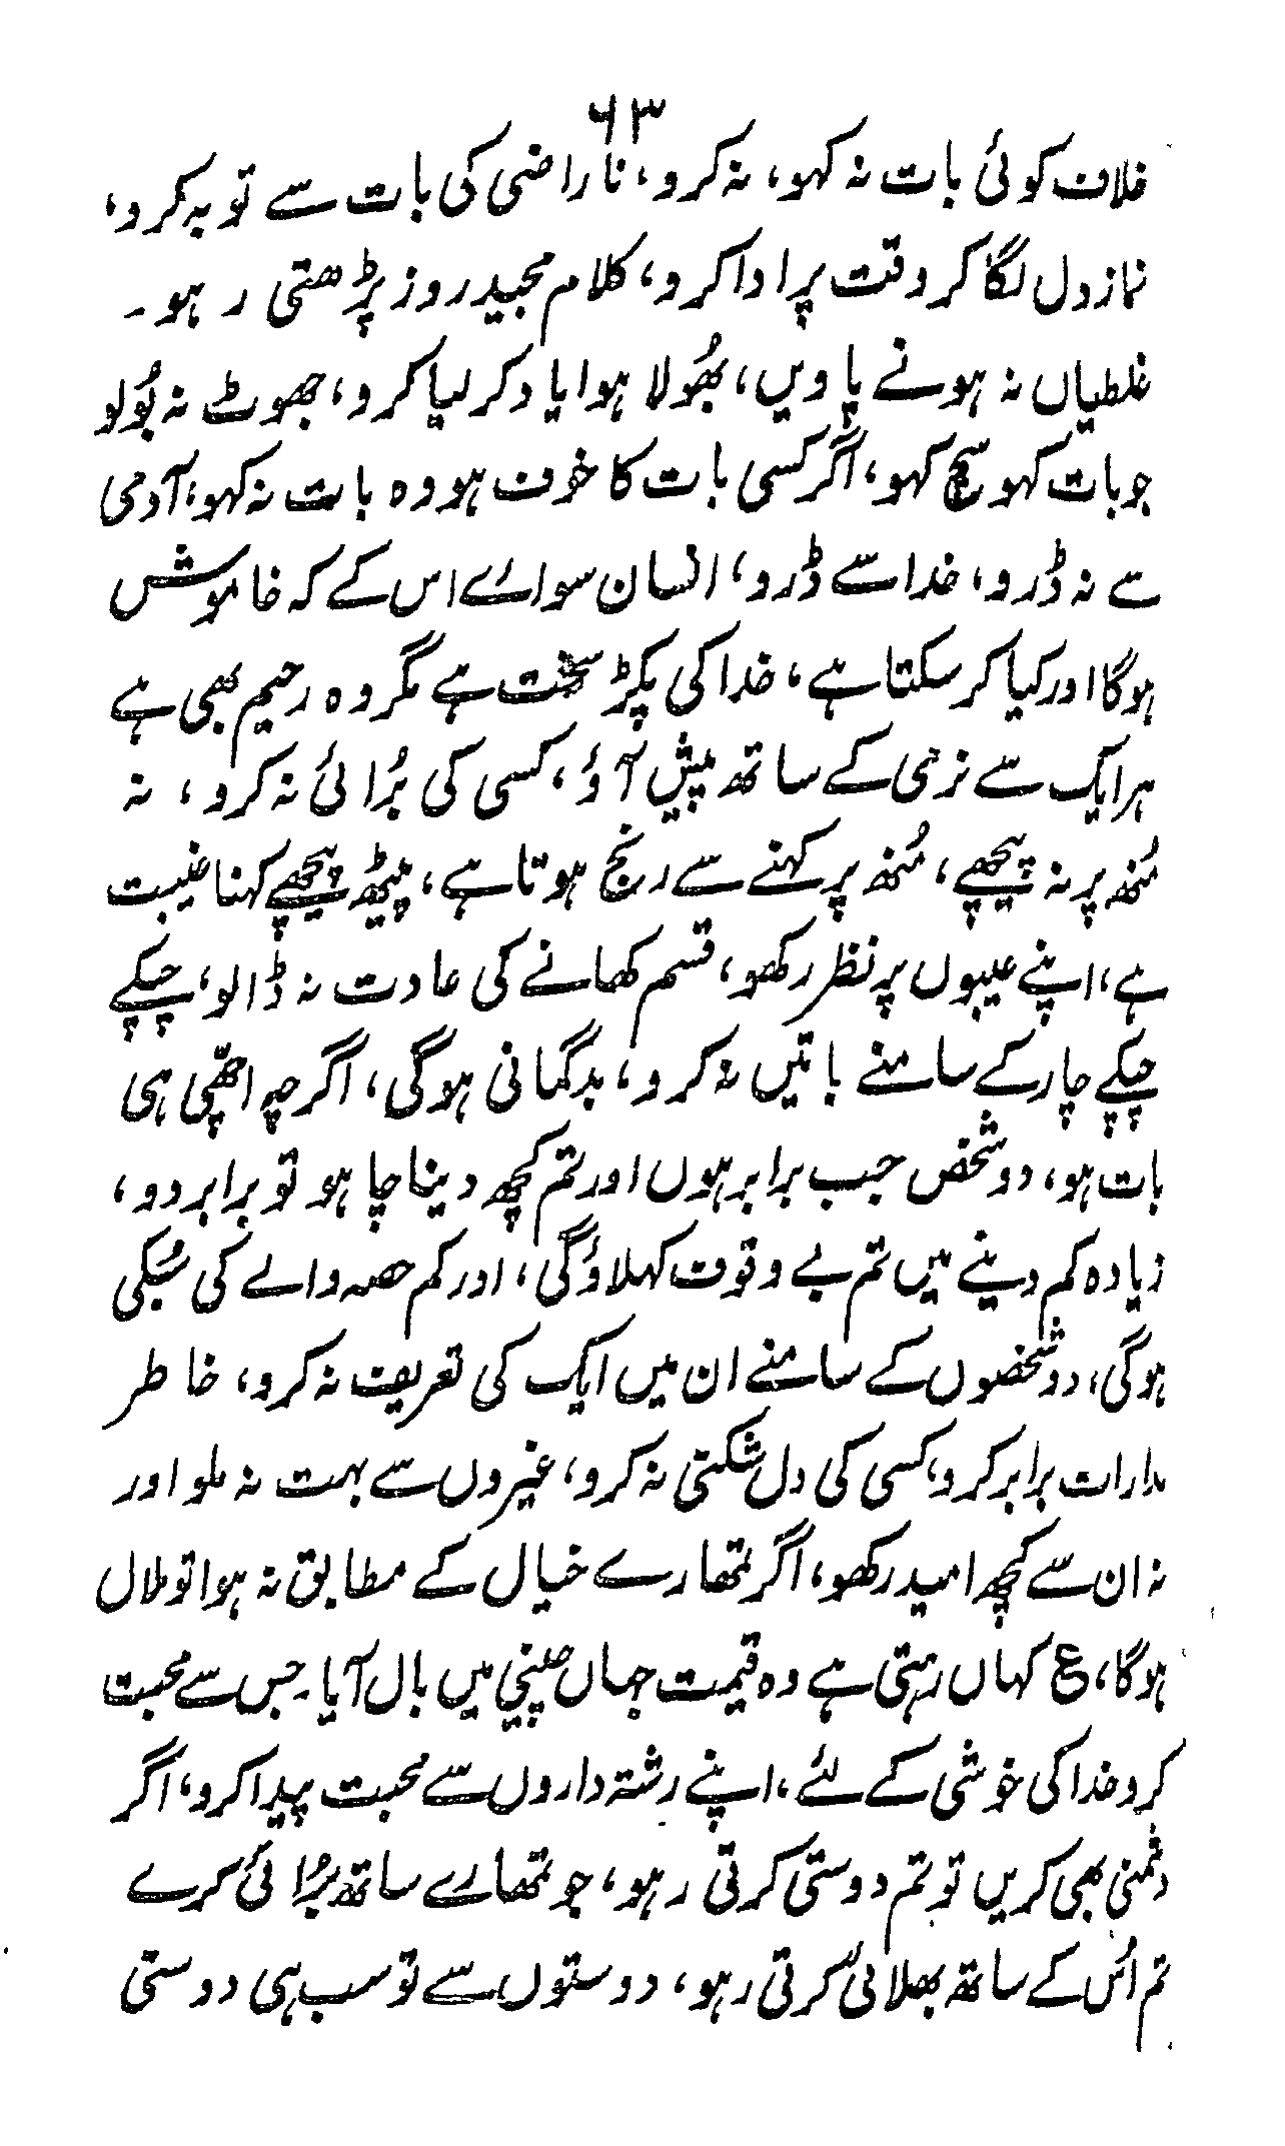 ۶۳
خلاف کوئی بات نہ کہو، نہ کرو، ناراضی کی بات سے توبہ کرو،
نماز دل لگا کر وقت پر ادا کرو، کلام مجید روز پڑھتی رہو۔
غلطیاں نہ ہونے پاویں، بھُولا ہوا یاد کر لیا کرو، جھوٹ نہ بُولو
جو بات کہو سچ کہو، اگر کسی بات کا خوف ہو وہ بات نہ کہو، آدمی
سے نہ ڈرو، خدا سے ڈرو، انسان سوائے اس کے کہ خاموش
ہوگا اور کیا کر سکتا ہے، خدا کی پکڑ سخت ہے مگر وہ رحیم بھی ہے
ہر ایک سے نرمی کے ساتھ پیش آؤ، کسی کی بُرائی نہ کرو، نہ
مُنھ پر نہ پیچھے، مُنھ پر کہنے سے رنج ہوتا ہے، پیٹھ پیچھے کہنا غیبت
ہے، اپنے عیبوں پر نظر رکھو، قسم کھانے کی عادت نہ ڈالو، چپکے
چپکے چار کے سامنے باتیں نہ کرو، بدگمانی ہوگی، اگرچہ اچھّی ہی
بات ہو، دو شخص جب برابر ہوں اور تم کچھ دینا چاہو تو برابر دو،
زیادہ کم دینے میں تم بے وقوف کہلاؤگی، اور کم حصہ والے کی سُبکی
ہوگی، دو شخصوں کے سامنے ان میں ایک کی تعریف نہ کرو، خاطر
مدارات برابر کرو، کسی کی دل شکنی نہ کرو، غیروں سے بہت نہ ملو اور
نہ ان سے کچھ امید رکھو، اگر تمھارے خیال کے مطابق نہ ہوا تو ملال
ہوگا، ع کہاں رہتی ہے وہ قیمت جہاں چینی میں بال آیا۔ جس سے محبت
کرو خدا کی خوشی کے لئے، اپنے رشتہ داروں سے محبت پیدا کرو، اگر
دشمنی بھی کریں تو تم دوستی کرتی رہو، جو تمھارے ساتھ بُرائی کرے
تم اُس کے ساتھ بھلائی کرتی رہو، دوستوں سے تو سب ہی دوستی